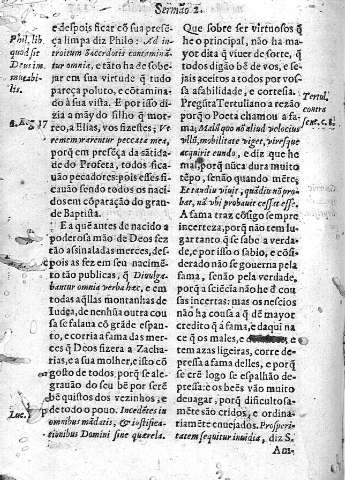 Sermão 2.
Phil. lib.
quod sit
Deus im-
mutabi-
lis.
3. Reg. 17
Luc. 1.
e despois ficar cõ sua prese-
ça limpa diz Philo: Ad in-
troitum sacerdotis contamina-
tur omnia, e tãto ha de sobe-
jar em sua virtude q̃ tudo
pareça poluto, e cõtamina-
do à sua vista. E por isso di-
zia a mãy do filho q̃ mor-
reo, a Elias, vos fizestes; Ve-
rememrarentur peccata mea,
porq̃ em preseça da sãtida-
de do Profeta, todos fica-
uão pecadores: pois esses fi-
cauão sendo todos os naci-
dos em cõparação do gran-
de Baptista.
E a quẽ antes de nacido a
poderosa mão de Deos fez
tão assinaladas merces, des-
pois as fez em seu nacimẽ-
to tão publicas, q̃ Divulga-
bantur omnia verba hæc, e em
todas aq̃llas montanhas de
Iudea, de nenhũa outra cou
sa se falaua cõ grãde espan-
to, e corria a fama das mer-
ces q̃ Deos fizera a Zacha-
rias, e a sua molher, e isso cõ
gosto de todos, porq̃ se ale-
grauão do seu bẽ por serẽ
bẽ quistos dos vezinhos, e
de todo o pouo. Incedẽtes in
omnibus mãdatis, & iustifica-
tionibus Domini sine querela.
Que sobre ser virtuosos q̃
he o principal, não ha ma-
yor dita q̃ viuer de sorte, q̃
todos digão bẽ de vos, e se-
jais aceitos a todos por vos-
sa asabilidade, e cortesia.
Pregũta Tertuliano a rezão
porq̃ o Poeta chamou a fa-
ma; Malũ quo nõ aliud velocius
vllũ, mobilitate viget, viresque
acquirit eundo, e diz que he
mal, porq̃ nũca dura muito
tẽpo, senão quando mẽte;
Et tandiu viuit, quãdiu nõ pro-
bat, nã vbi probauit cessat esse.
A fama traz cõsigo sempre
incerteza, porq̃ não tem lu-
gar tanto q̃ se sabe a verda-
de, e por isso o sabio, e cõsi-
derado não se gouerna pela
fama, senão pela verdade,
porq̃ a sciẽcia não he de cou
sas incertas: mas os nescios
não ha cousa a q̃ dẽ mayor
credito q̃ a fama, e daqui na
ce q̃ os males, e
tem azas ligeiras, corre de-
pressa a fama delles, e porq̃
se crẽ logo se espalhão de-
pressa: os beẽs vão muito
deuagar, porq̃ dificultosa-
mẽte são cridos, e ordina-
riamẽte enuejados. Prosperi-
tatem sequitur inuidia, diz S.
Am-
Tertul.
contra
gent. c. 8.